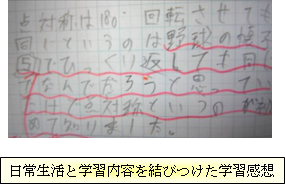 点対称は180°回転させても
同じというのは野球の恒で
⑤でひっくり返しても同じ
でなんでだろうと思ってい
たけど点対称というのが
めて分かりました。
日常生活と学習内容を結びつけた学習感想